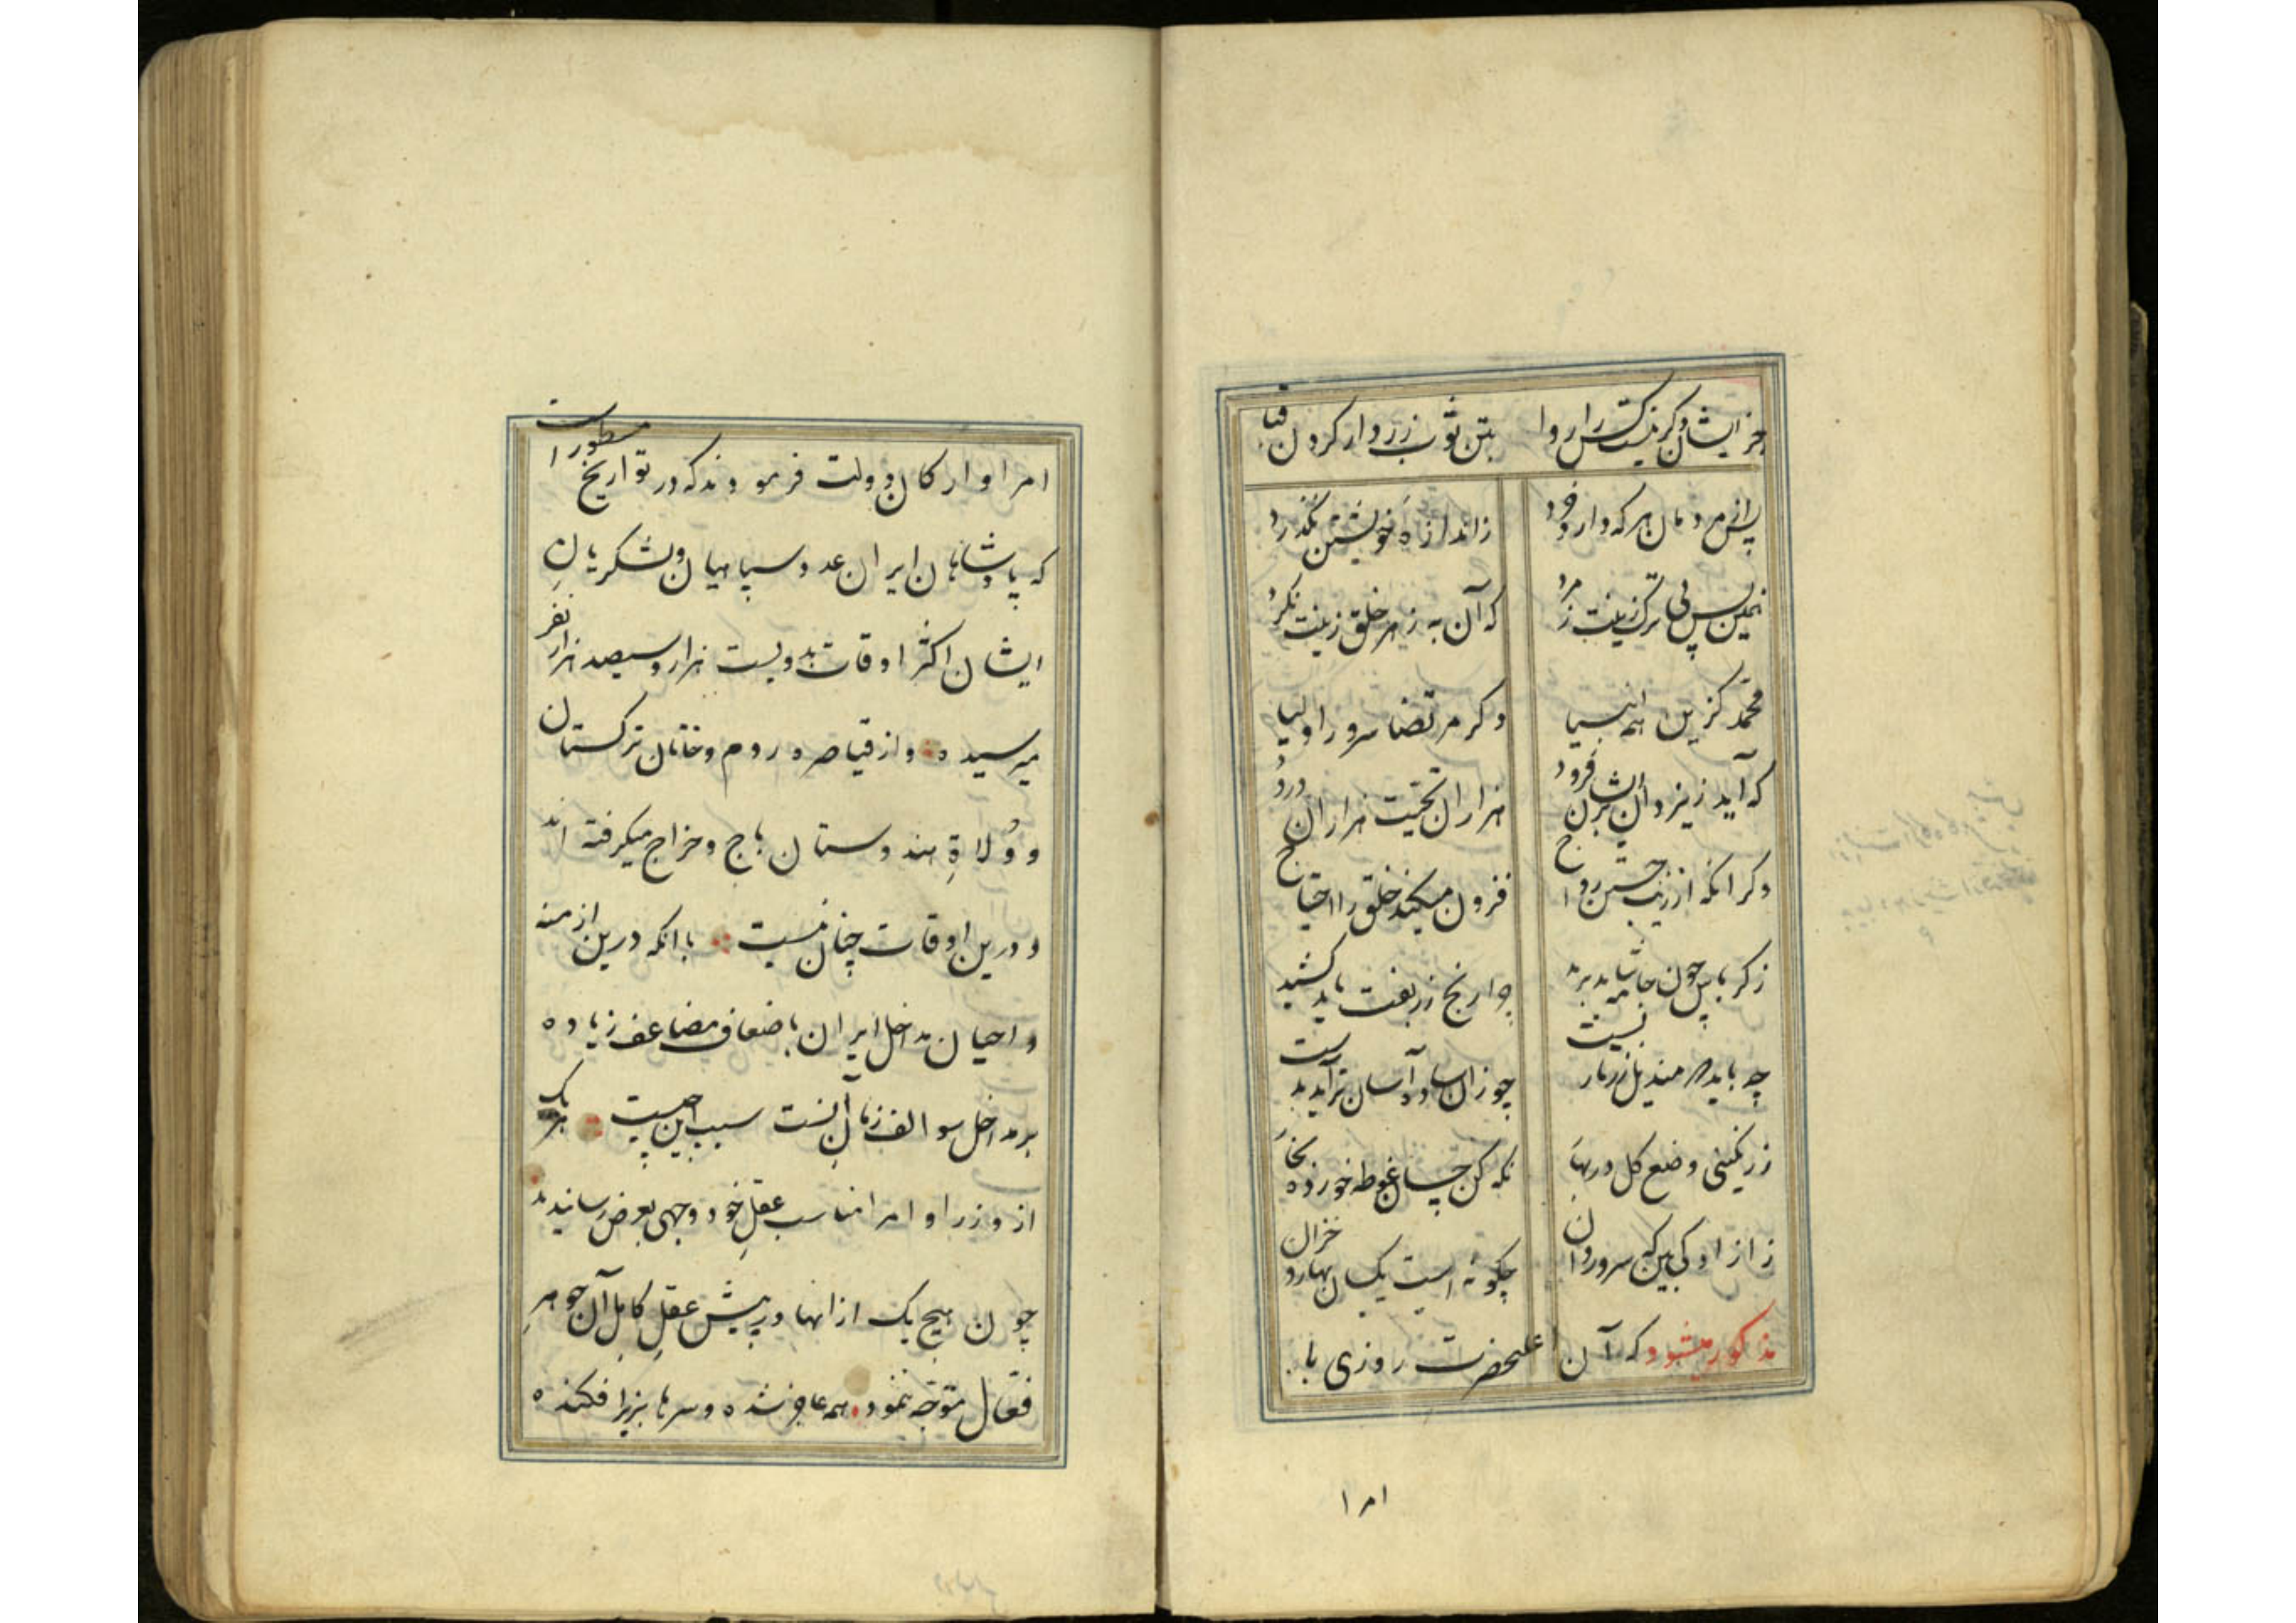 جز ایشان دگر نیست کس را روا بتن ثوب زردار کردن قبا
پس از مردمان هر که دارد خرد ز اندازهٔ خویشتن نگذرد
همین بس پی ترک زینت ز مرد که آن به ز هر خلق زینت نکرد
محمد گزین همه انبیا دگر مرتضا سرور اولیا
که آید ز یزدان بر ایشان فرود هزاران تحیت هزاران درود
دگر آنکه از زیب جستن رواج فزون میکند خلق را احتیاج
ز کرباس چون جامه شاید برید چرا رنج زربفت باید کشید
چه باید مندیل زرتار بست چو زان ساده آسان تر آید بدست
ز رنگینی وضع گل در بهار نگه کن چسان غوطه خورده بخار
ز آزادگی بین که سرو روان چگونه است یکسان بهار و خزان
مذکور میشود که آن اعلیحضرت روزی با
امرا
امرا و ارکان دولت فرمودند که در تواریخ مسطور است
که پادشاهان ایران عدد سپاهیان و لشکریان
ایشان اکثر اوقات بدویست هزار و سیصد هزار نفر
میرسیده و از قیاصره روم و خانان ترکستان
و وُلاةِ هندوستان باج و خراج میگرفته اند
و درین اوقات چنان نیست با آنکه درین ازمنه
و احیان مداخل ایران باضعاف مضاعف زیاده
بر مداخل سوالف زمان آنست سبب این چیست هر یک
از وزرا و امرا مناسب عقلِ خود وجهی بعرض رسانیدند
چون هیچ یک از آنها در پیش عقلِ کاملِ آن جوهرِ
فعّال متوجّه ننمود همه عاجز شده و سرها بزیر افکنده